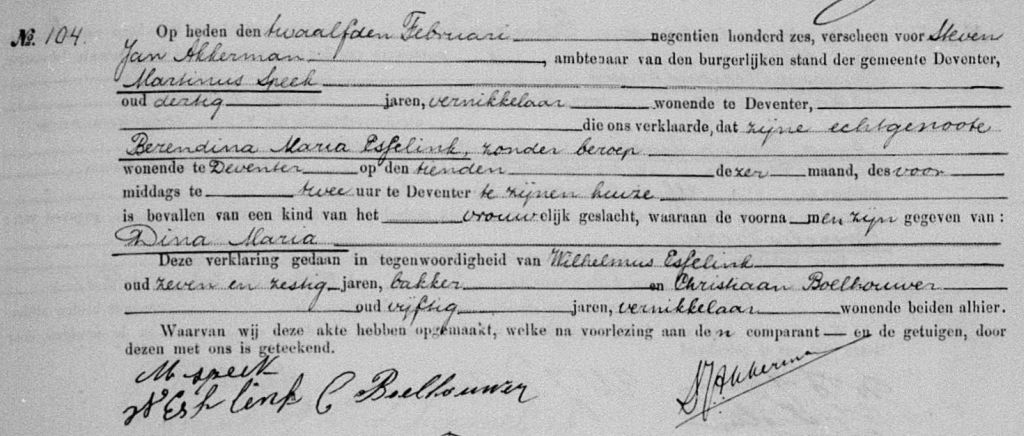 No. 104. Op heden den twaalfden Februari negentien honderd zes, verscheen voor Steven
Jan Akkerman, ambtenaar van den burgerlijken stand der gemeente Deventer,
Martinus Speek
oud dertig jaren, vernikkelaar wonende te Deventer,
die ons verklaarde, dat zijne echtgenoote
Berendina Maria Esselink, zonder beroep
wonende te Deventer op den tienden dezer maand, des voor
middags te twee uur te Deventer te zijnen huize
is bevallen van een kind van het vrouwelijk geslacht, waaraan de voorna men zijn gegeven van:
Dina Maria
Deze verklaring gedaan in tegenwoordigheid van Wilhelmus Esselink
oud zeven en zestig jaren, bakker en Christiaan Boelhouwer
oud vijftig jaren, vernikkelaar wonende beiden alhier.
Waarvan wij deze akte hebben opgemaakt, welke na voorlezing aan den comparant en de getuigen, door
dezen met ons is geteekend.
M speek
W Esselink C Boelhouwer
SJAkkerman